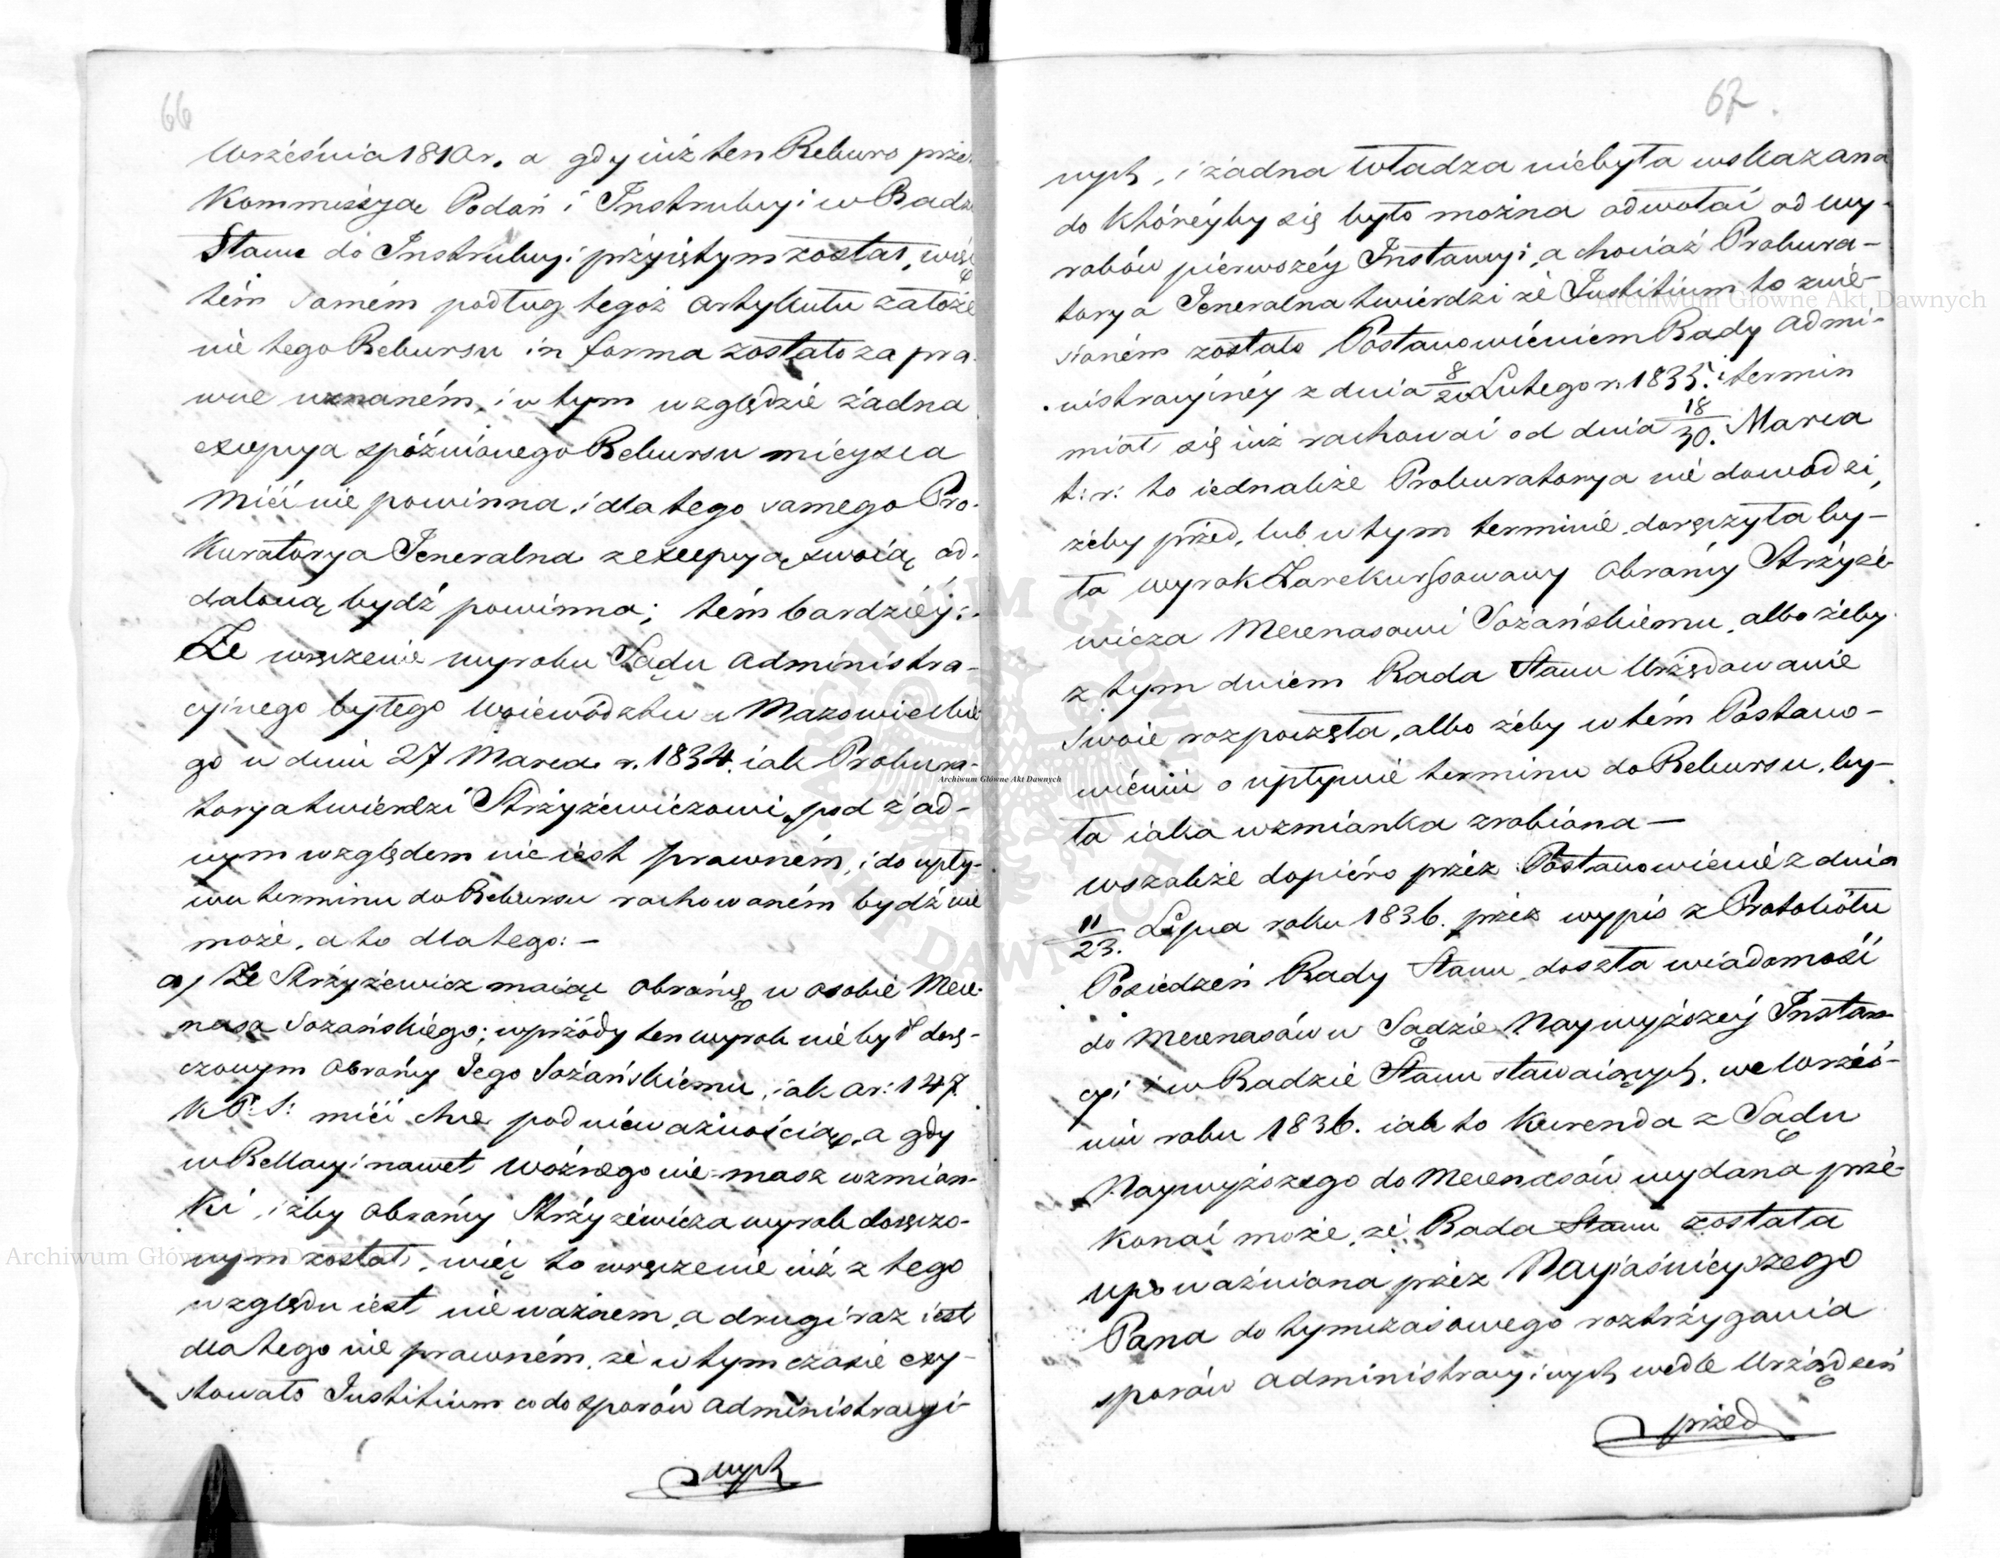 66
Września 1810 r. a gdy iuż ten Rekurs przez
Kommissyą Podań i Instrukcyi w Radzie
Stanu do Instrukcyi przyiętym został, więc
tém samém podług tegoż artykułu założe
nie tego Rekursu in forma zostało za pra-
wne uznaném, i w tym względzie żadna
excepcya spóźnionego Rekursu mieysca
mieć nie powinna, i dla tego samego Pro-
kuratorya Jeneralna z excepcyą swoią od-
daloną bydź powinna; tém bardziéy:
Że wręczenie wyroku Sądu Administra-
cyinego byłego Woiewództwa Mazowieckie
go w dniu 27 Marca r. 1834. iak Prokura-
torya twierdzi Strzyżewiczowi, pod żad-
nym względem nie iest prawném, i do upły-
wu terminu do Rekursu rachowaném bydź nie
może, a to dla tego: —
a/ Że Strzyżewicz maiąc obrońcę w osobie Mece-
nasa Sozańskiégo; wprzódy ten wyrok nie był dorę-
czonym obrońcy Jego Sozańskiemu, iak ar: 147.
K. P. S: mieć chce pod nieważnością, a gdy
w Rellacyi nawet Woźnego nie-masz wzmian-
ki, iżby obrońcy Strzyżewicza wyrok doręczo-
nym został, więc to wręczenie iuż z tego
względu iest nieważnem, a drugi raz iest
dla tego nie prawném, że w tym czasie exy-
stowało Justitium co do sporów administracyi-
nych
67.
nych, i żadna władza niebyła wskazana
do któréyby się było można odwołać od wy-
roków pierwszéy Instancyi, a chociaż Prokura-
torya Jeneralna twierdzi że Justitium to znie-
sioném zostało Postanowieniem Rady Admi-
nistracyinéy z dnia 8/20 Lutego r. 1835. i termin
miał się iuż rachować od dnia 18/30. Marca
t: r: to iednakże Prokuratorya nie dowodzi,
żeby przed, lub w tym terminie, doręczyła by-
ła wyrok Zarekursowany obrońcy Strzyże-
wicza Mecenasowi Sozańskiemu, albo żeby
z tym dniem Rada Stanu Urzędowanie
Swoie rozpoczęła, albo żeby w tém Postano-
wieniu o upłynie terminu do Rekursu, by-
ła iaka wzmianka zrobiona —
wszakże dopiéro przez Postanowienie z dnia
11/23. Lipca roku 1836. przez wypis z Protokółu
Posiedzeń Rady Stanu, doszła wiadomość
do Mecenasów w Sądzie Naywyższéy Instan-
cyi i w Radzie Stanu stawaiących, we Wrześ-
niu roku 1836. iak to Kurenda z Sądu
Naywyższego do Mecenasów wydana prze-
konać może, że Rada Stanu została
upoważniona przez Nayiaśnieyszego
Pana do tymczasowego roztrzygania
sporów administracyinych wedle Urządzeń
przed
Archiwum Główne Akt Dawnych
Archiwum Główne Akt Dawnych
Archiwum Główne Akt Dawnych
ARCHIWUM GŁÓWNE AKT DAWNYCH